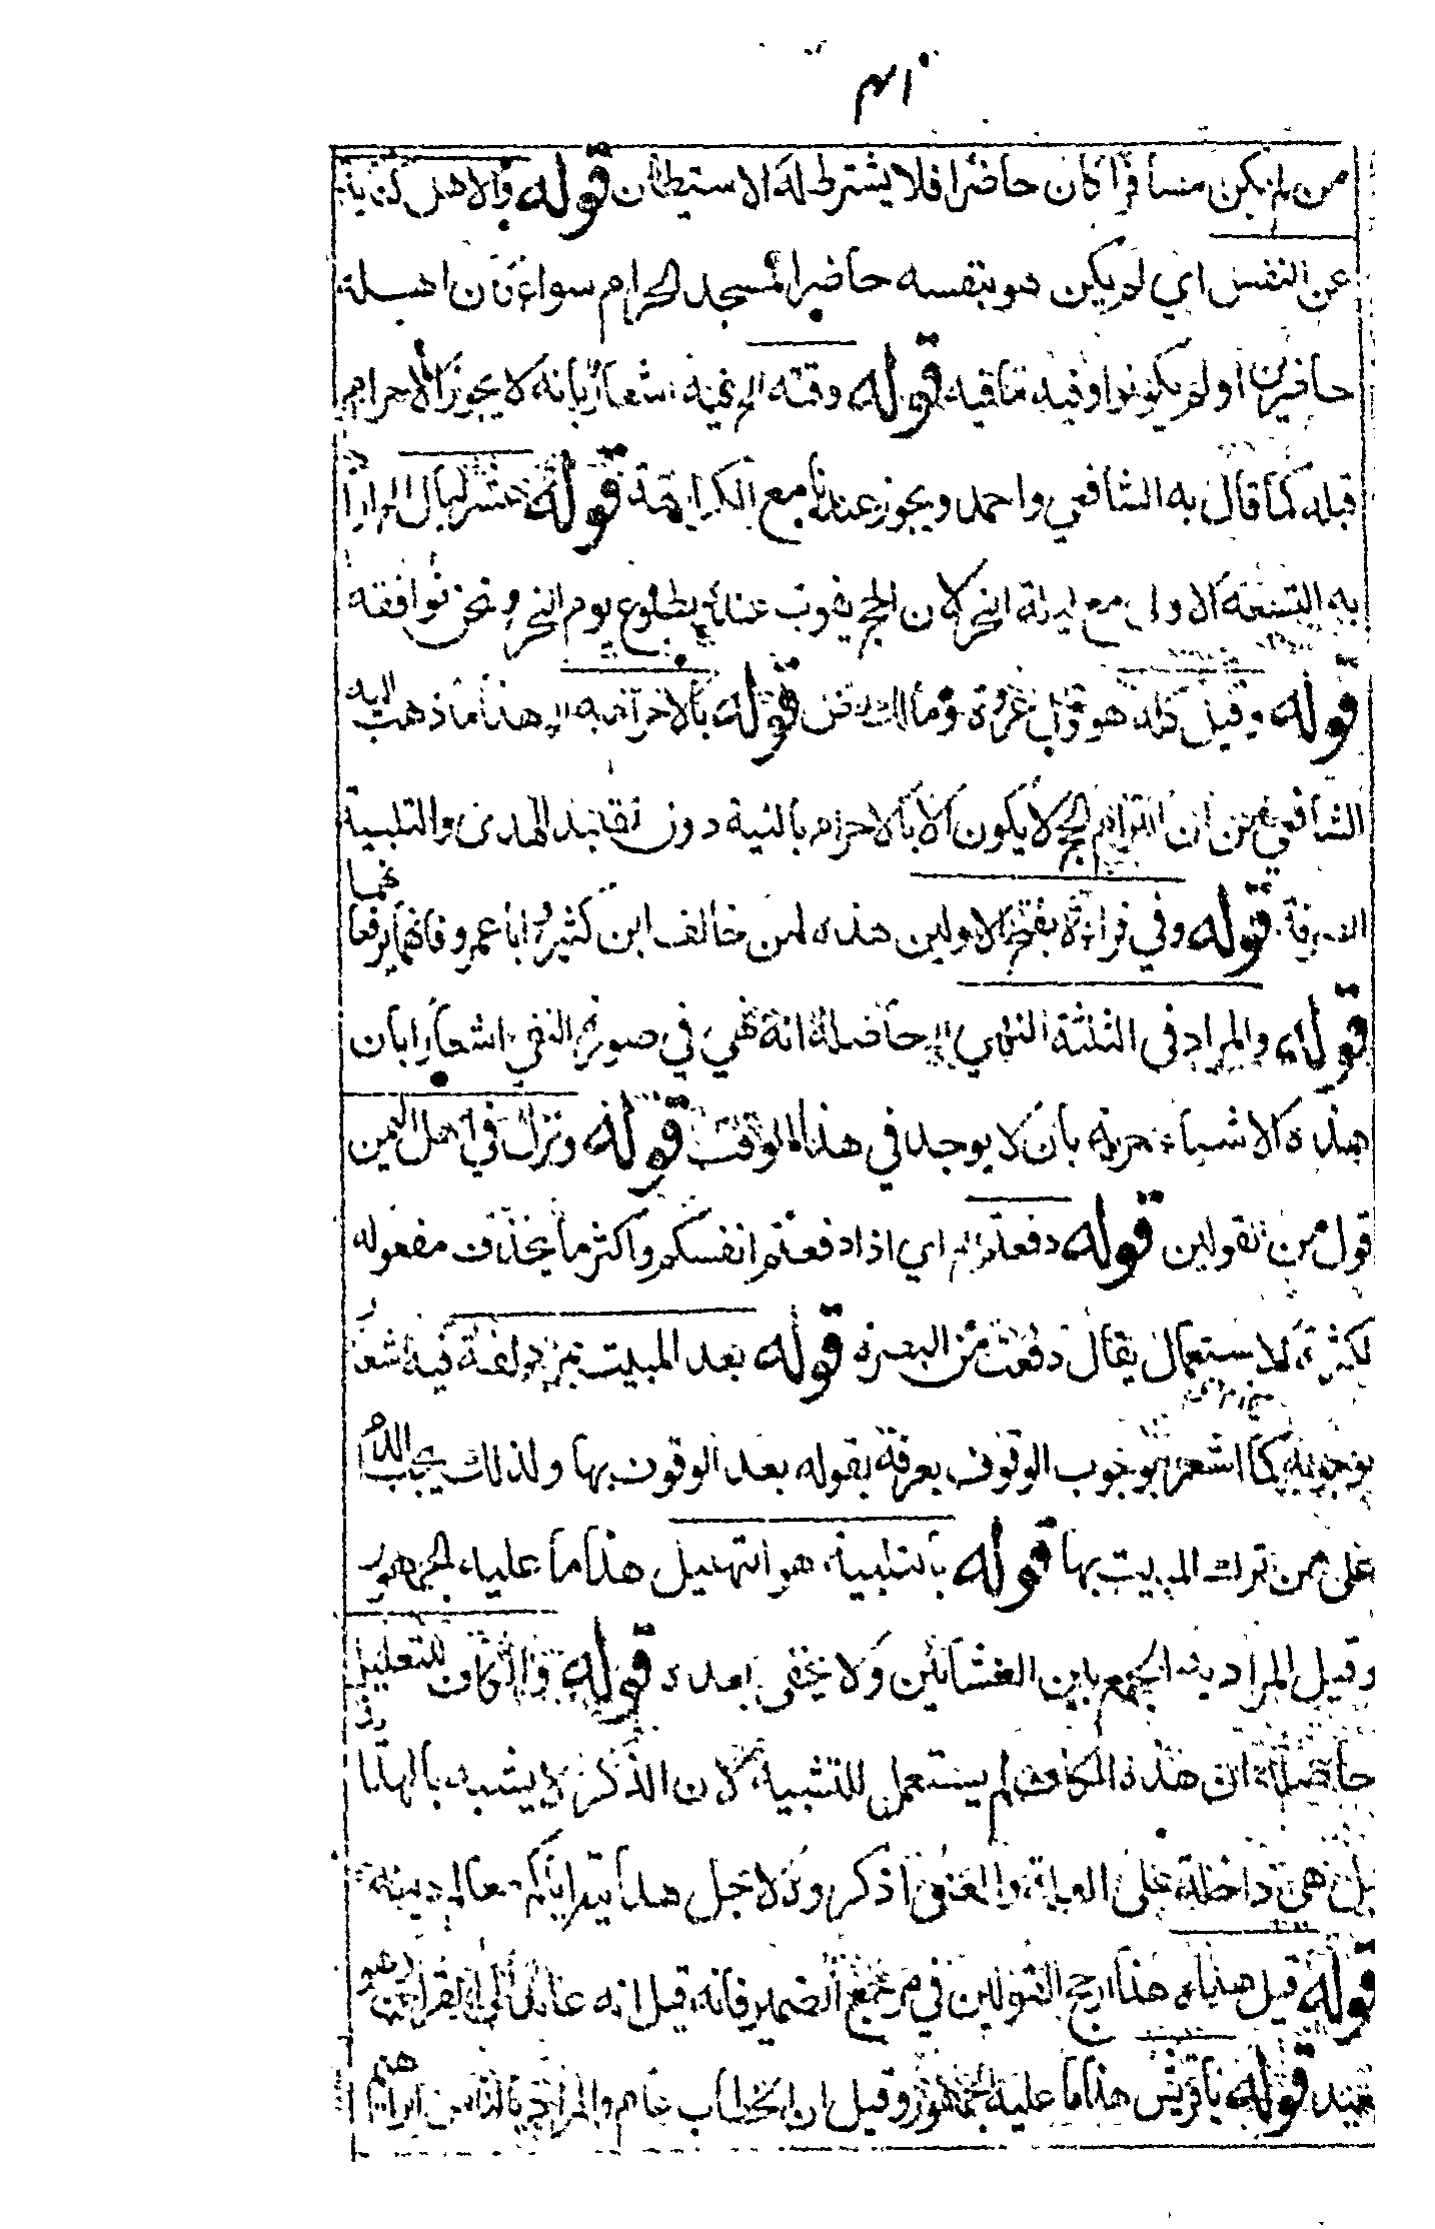 من لم يكن مسافرا كان حاضرا فلا يشترط له الاستيطان قوله والاهل كناية
عن النفس اي لم يكن هو بنفسه حاضر المسجد الحرام سواء كان اهله
حاضرين او لم يكونوا وفيه ما فيه قوله وقته الخ فيه اشعار بانه لا يجوز الاحرام
قبله كما قال به الشافعي واحمد ويجوز عندنا مع الكراهة قوله عشر ليال المراد
به التسعة الاولى مع ليلة النحر لان الحج يفوت عنده بطلوع يوم النحر ونحن نوافقه
قوله وقيل كله هو قول عروة ومالك قوله بالاحرام به الخ هذا ما ذهب اليه
الشافعي من ان التزام الحج لا يكون الا بالاحرام بالنية دون تقليد الهدى والتلبية
الصرفة قوله وفي قراءة بفتح الاولين هذه لمن خالف ابن كثير وابا عمرو فانهما يرفعانهما
قوله والمراد في الثلثة النهي الخ حاصله انه نهي في صورة النفي اشعارا بان
هذه الاشياء حرية بان لا يوجد في هذا الوقت قوله ونزل في اهل اليمن
قول من القولين قوله دفعتم الخ اي اذا دفعتم انفسكم واكثر ما يحذف مفعوله
لكثرة الاستعمال يقال دفعت من البصرة قوله بعد المبيت بمزدلفة فيه اشعار
بوجوبه كما اشعر بوجوب الوقوف بعرفة بقوله بعد الوقوف بها ولذلك يجب الدم
على من ترك المبيت بها قوله بالتلبية هو التهليل هذا ما عليه الجمهور
وقيل المراد به الجمع بين العشائين ولا يخفى بعده قوله والكاف للتعليل
حاصله ان هذه الكاف لم يستعمل للتشبيه لان الذكر لا يشبه بالهداية
بل هي داخلة على العلة والمعنى اذكروه لاجل هدايته اياكم معالم دينه
قوله قبل هداه هذا ارجح القولين في مرجع الضمير فانه قيل انه عائد الى القرآن وهو
بعيد قوله يا قريش هذا ما عليه الجمهور وقيل ان الخطاب عام والمراد بالناس ابراهيم